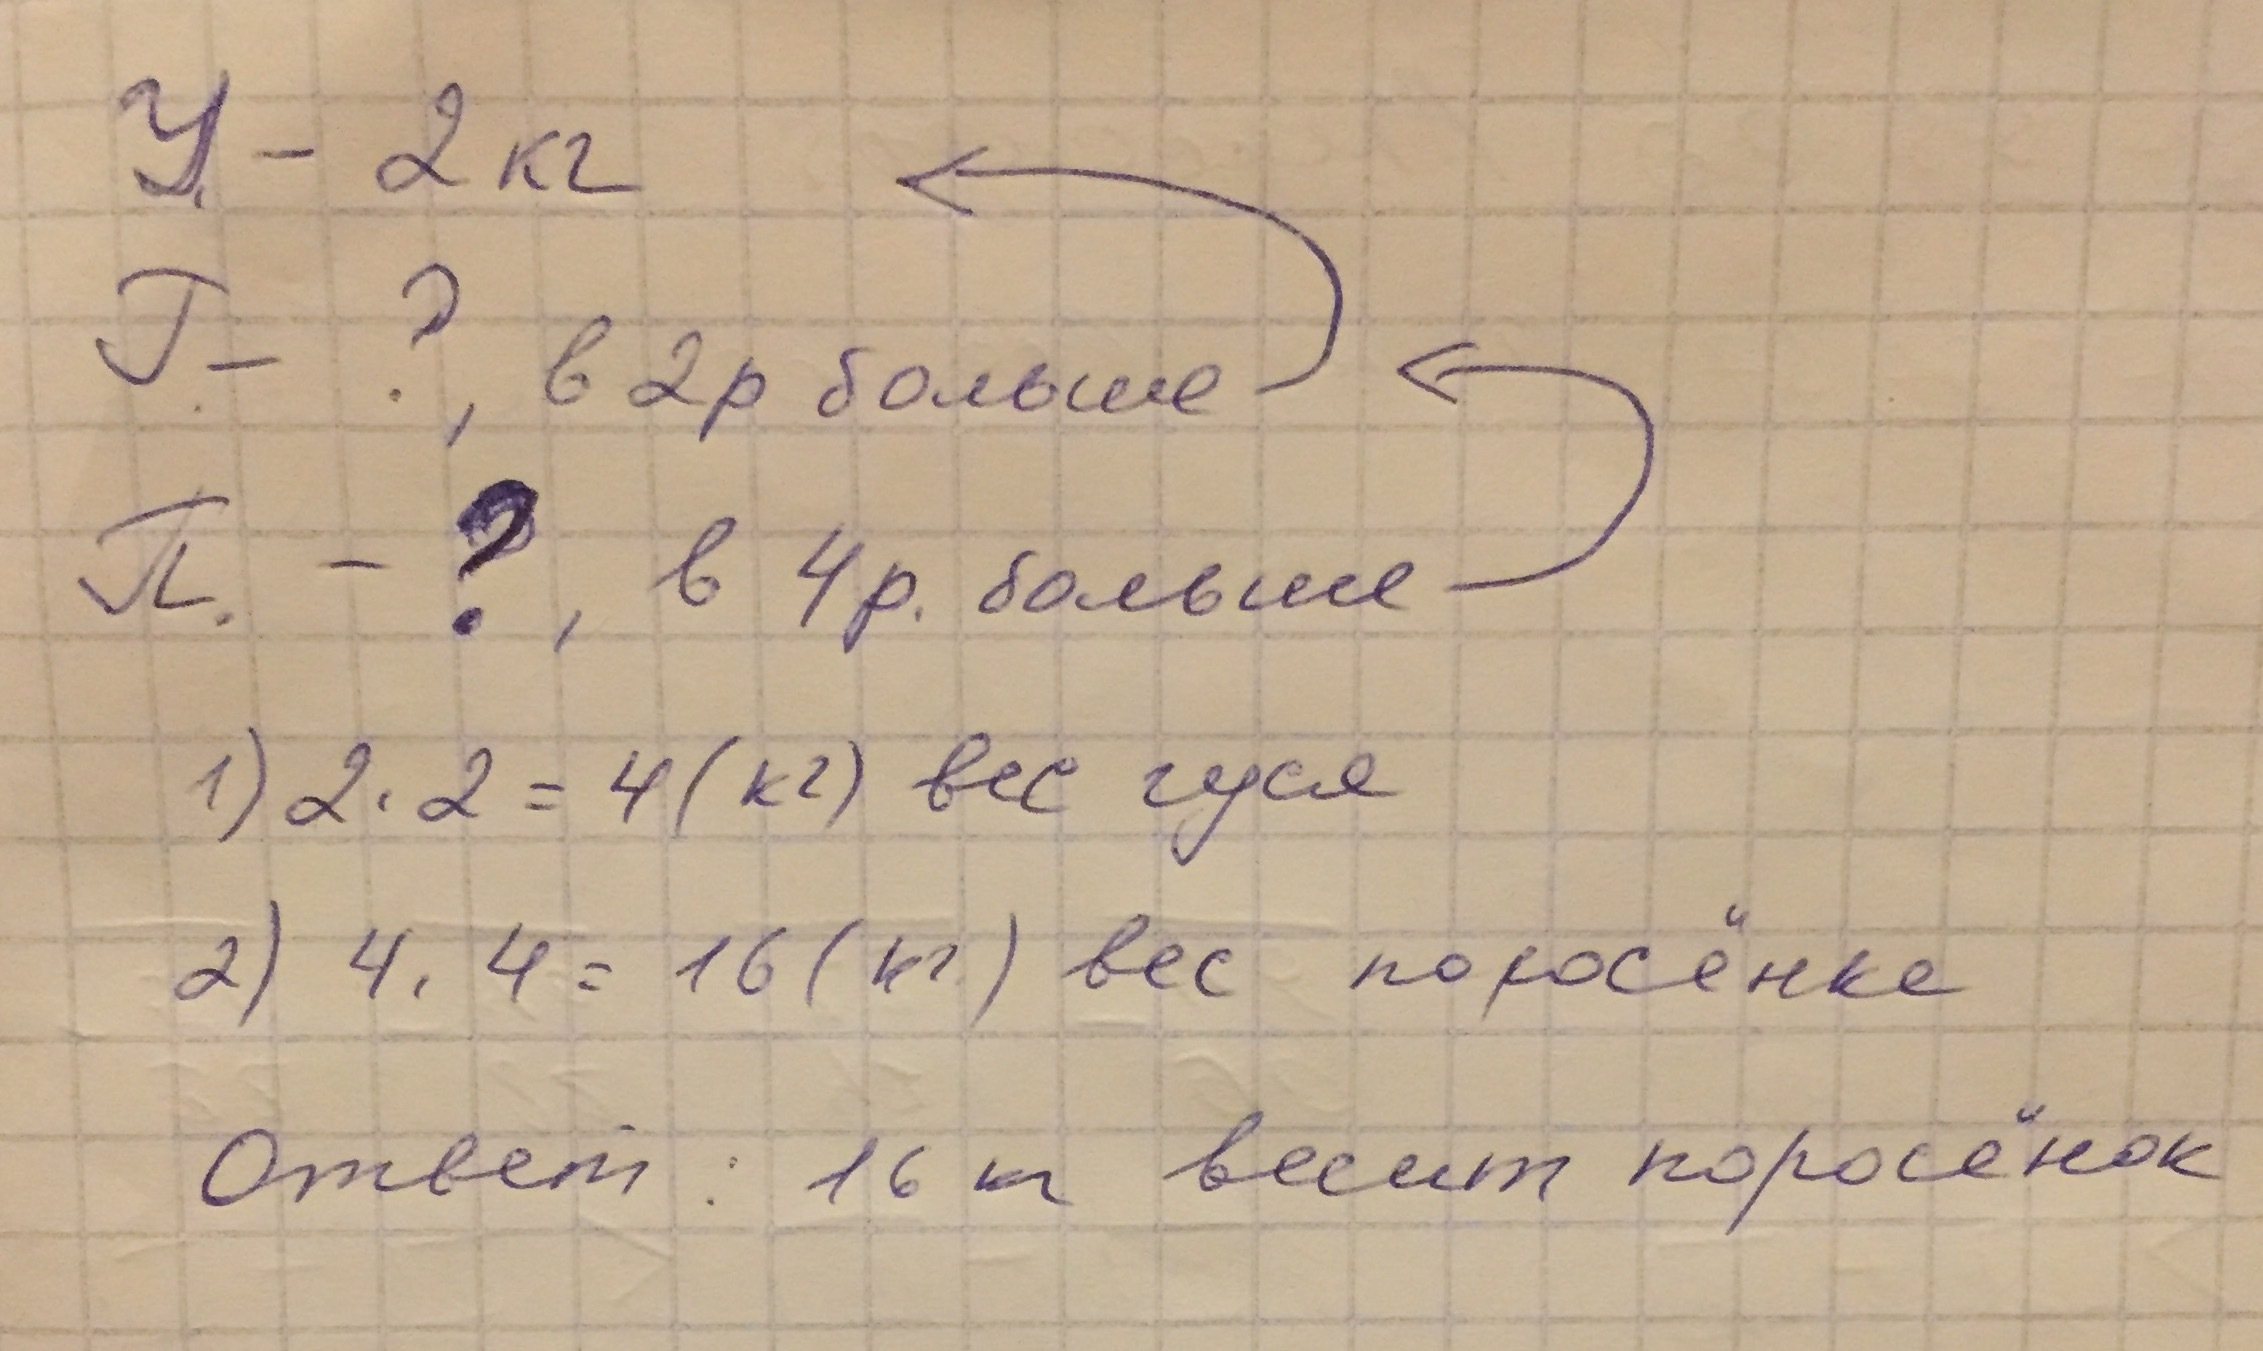 У. - 2 кг
Г. - ?, в 2р больше
П. - ?, в 4р. больше
1) 2 · 2 = 4 (кг) вес гуся
2) 4 · 4 = 16 (кг) вес поросёнка
Ответ: 16 кг весит поросёнок